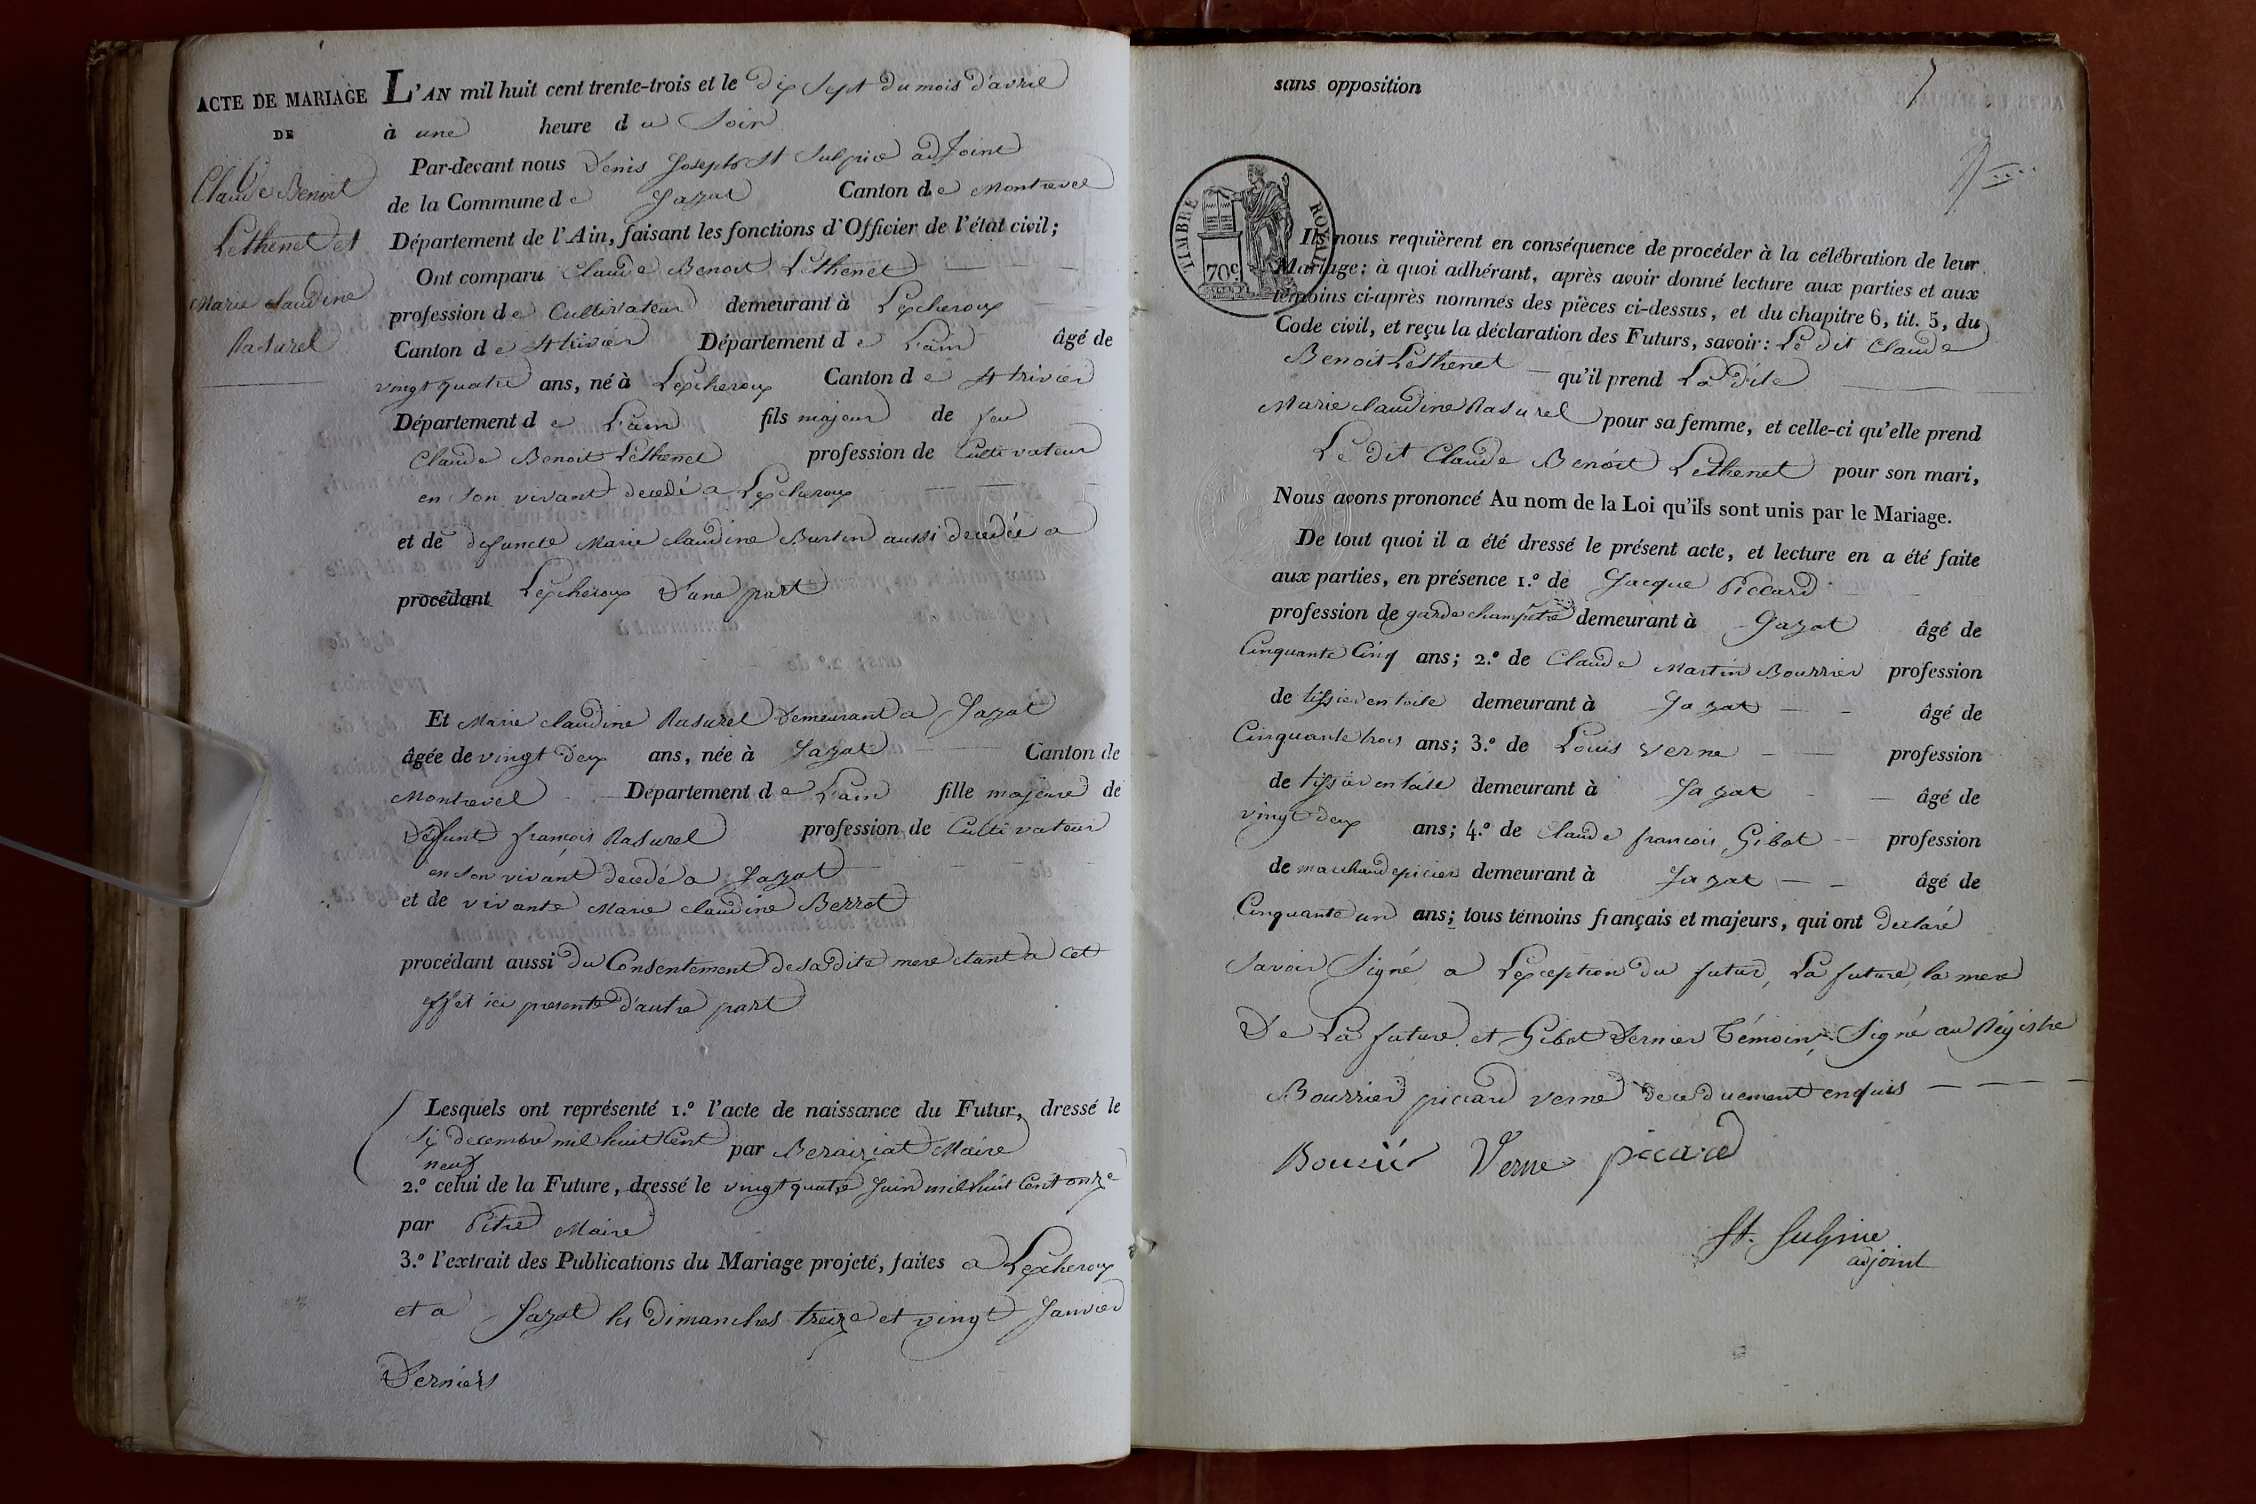 ACTE DE MARIAGE
DE
Claude Benoit
Lethenet et
Marie Claudine
Rasurel
L'AN mil huit cent trente-trois et le dix sept du mois d'avril
à une heure du Soir
Par-devant nous Denis Joseph St Sulpice adjoint
de la Commune de Jayat Canton de Montrevel
Département de l'Ain, faisant les fonctions d'Officier de l'état civil;
Ont comparu Claude Benoit Lethenet
profession de Cultivateur demeurant à Lescheroux
Canton de St trivier Département de L'ain âgé de
vingt quatre ans, né à Lescheroux Canton de St trivier
Département de L'ain fils majeur de feu
Claude Benoit Lethenet profession de Cultivateur
en son vivant decedé a Lescheroux
et de defuncte Marie Claudine Burtin aussi decedée a
procédant Lescheroux D'une part
Et Marie Claudine Rasurel Demeurant a Jayat
âgée de vingt deux ans, née à Jayat Canton de
Montrevel Département de L'ain fille majeure de
Défunt françois Rasurel profession de Cultivateur
en son vivant decedé a Jayat
et de vivante Marie Claudine Berrot
procédant aussi du Consentement de sadite mere etant a cet
effet ici presente d'autre part
Lesquels ont représenté 1.º l'acte de naissance du Futur, dressé le
six decembre mil huit cent par Maire
neuf
2.º celui de la Future, dressé le vingt quatre Juin mil huit Cent onze
par Pitre Maire
3.º l'extrait des Publications du Mariage projeté, faites a Lescheroux
et a Jayat les dimanches treize et vingt Janvier
Derniers
sans opposition
7
TIMBRE ROYAL
70c
Ils nous requièrent en conséquence de procéder à la célébration de leur
Mariage; à quoi adhérant, après avoir donné lecture aux parties et aux
témoins ci-après nommés des pièces ci-dessus, et du chapitre 6, tit. 5, du
Code civil, et reçu la déclaration des Futurs, savoir: Le dit Claude
Benoit Lethenet qu'il prend La dite
Marie Claudine Rasurel pour sa femme, et celle-ci qu'elle prend
Le dit Claude Benoit Lethenet pour son mari,
Nous avons prononcé Au nom de la Loi qu'ils sont unis par le Mariage.
De tout quoi il a été dressé le présent acte, et lecture en a été faite
aux parties, en présence 1.º de Jacque Piccard
profession de garde champêtre demeurant à Jayat âgé de
Cinquante Cinq ans; 2.º de Claude Martin Bourrier profession
de tissier en toile demeurant à Jayat âgé de
Cinquante trois ans; 3.º de Louis Verne profession
de tissier en toile demeurant à Jayat âgé de
vingt deux ans; 4.º de Claude françois Gibot profession
de marchand epicier demeurant à Jayat âgé de
Cinquante un ans; tous témoins français et majeurs, qui ont declaré
savoir Signé a L'exception du futur, La future, la mere
De La future et Gibot Dernier Témoin Signé au Régistre
Bourrier piccard verne de ce duement enquis
Verne piccard
St. Sulpice
adjoint